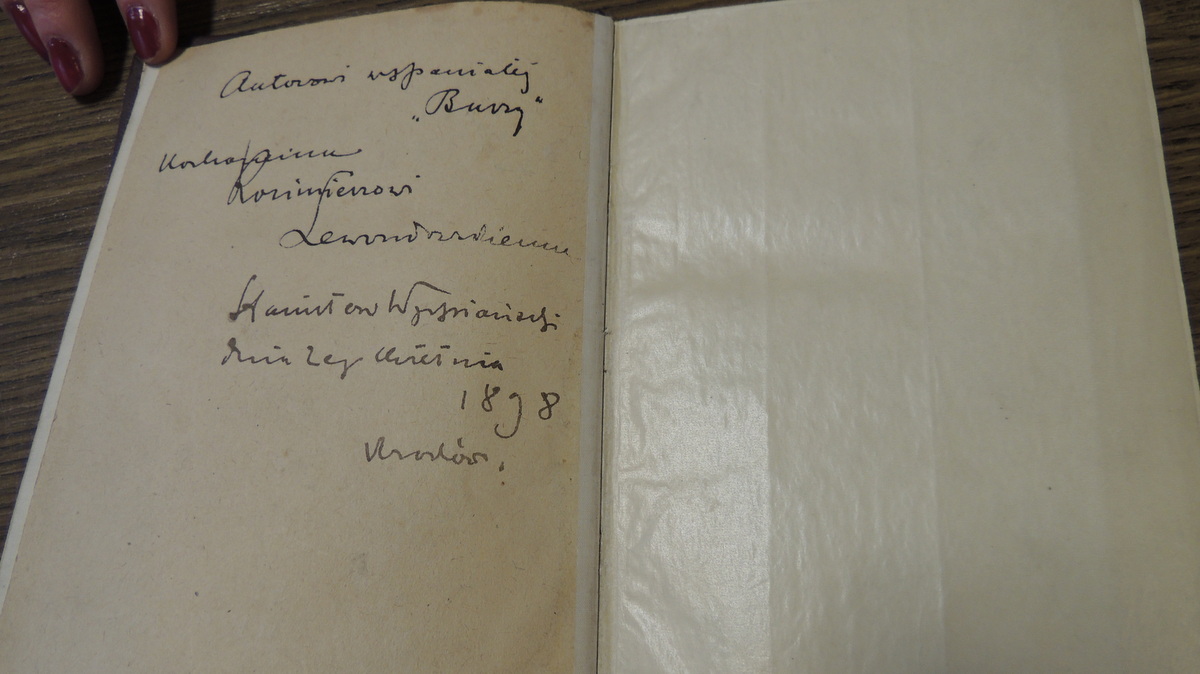 Autorowi wspaniałej
„Burzy"
Kochajżeimu
Kazimierzowi
Lewandowskiemu
Stanisław Wyspiański
dnia 2eg Kwietnia
1898
Kraków.